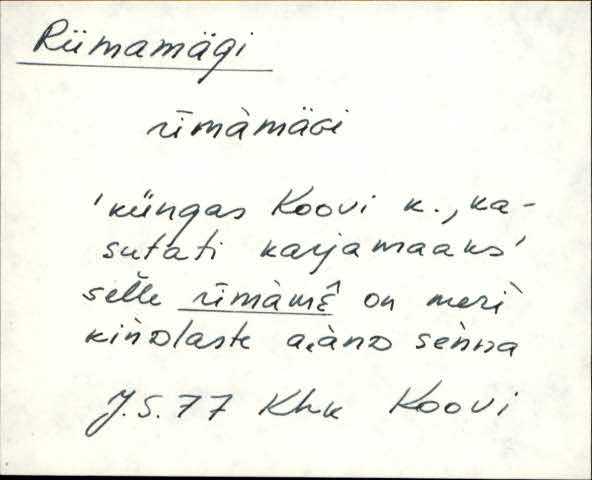 Riimamägi
rīmàmäGi
'küngas Koovi k., ka-
sutati karjamaaks'
selle rīmàmɛ̂ on meri
kìnDlaste a͔ànD sènna
J.S. 77 Khk Koovi